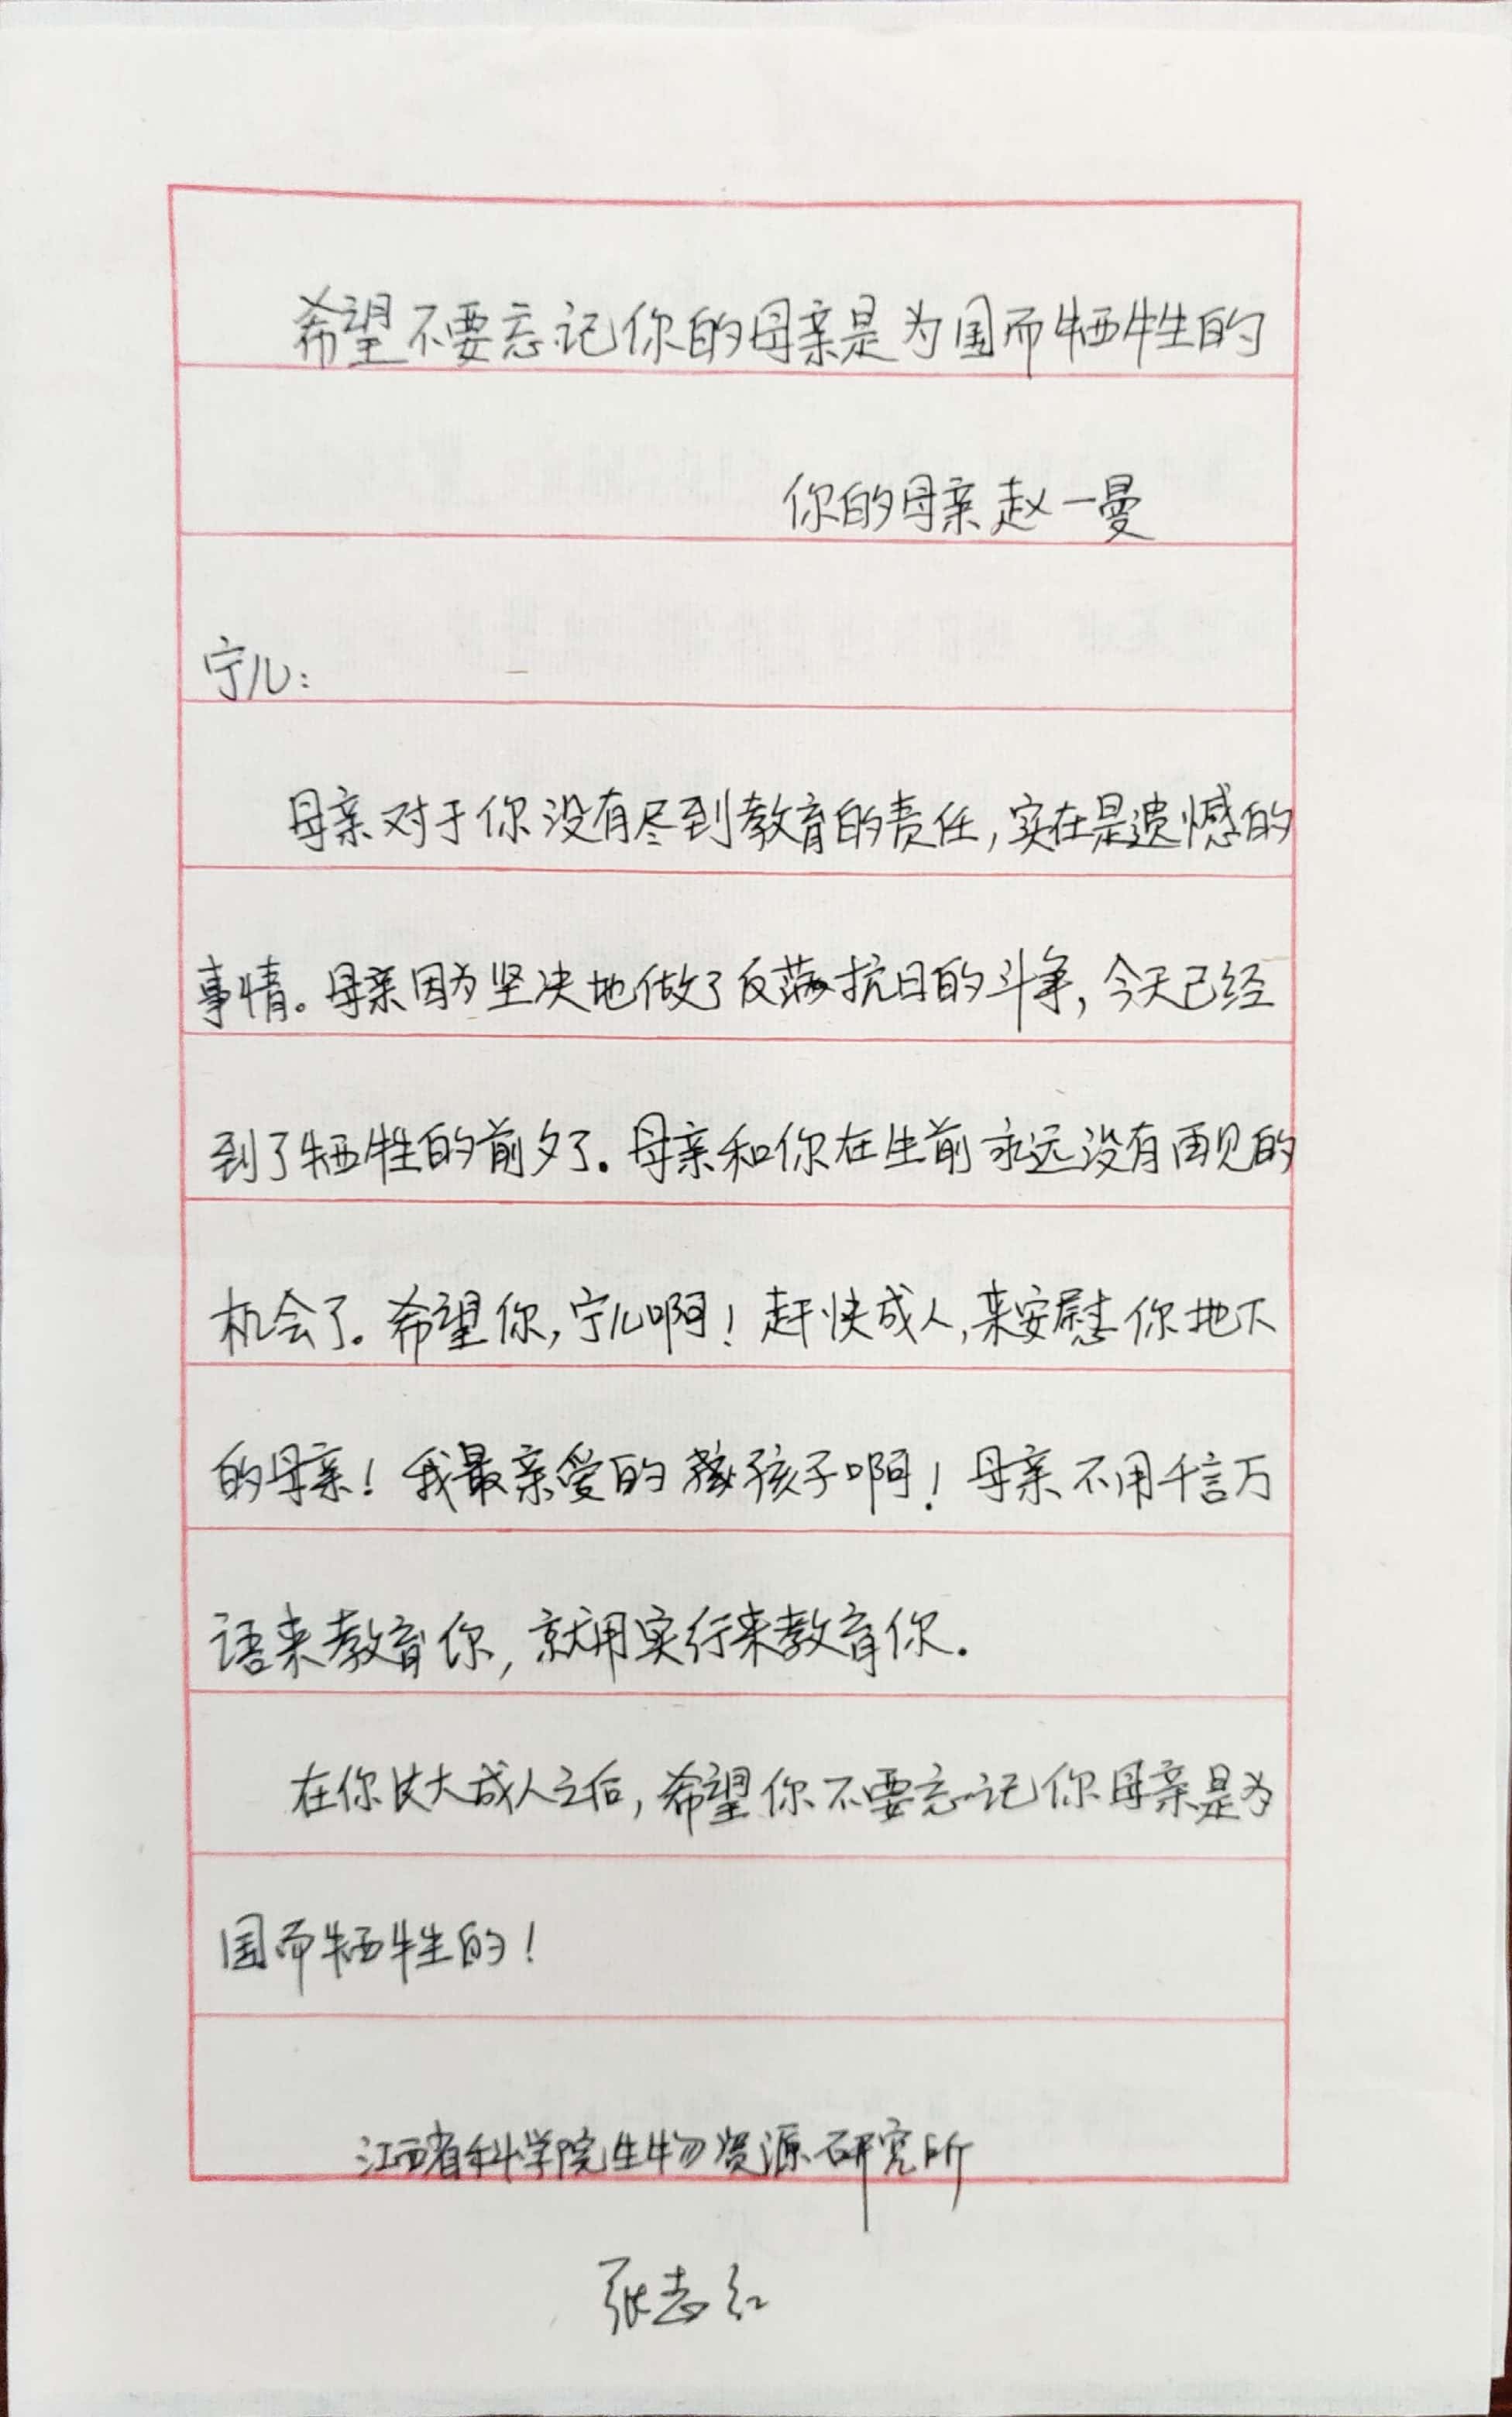 希望不要忘记你的母亲是为国而牺牲的
你的母亲赵一曼
宁儿：
母亲对于你没有尽到教育的责任，实在是遗憾的
事情。母亲因为坚决地做了反满抗日的斗争，今天已经
到了牺牲的前夕了．母亲和你在生前永远没有再见的
机会了。希望你，宁儿啊！赶快成人，来安慰你地下
的母亲！我最亲爱的孩子啊！母亲不用千言万
语来教育你，就用实行来教育你．
在你长大成人之后，希望你不要忘记你母亲是为
国而牺牲的！
江西省科学院生物资源研究所
张志红